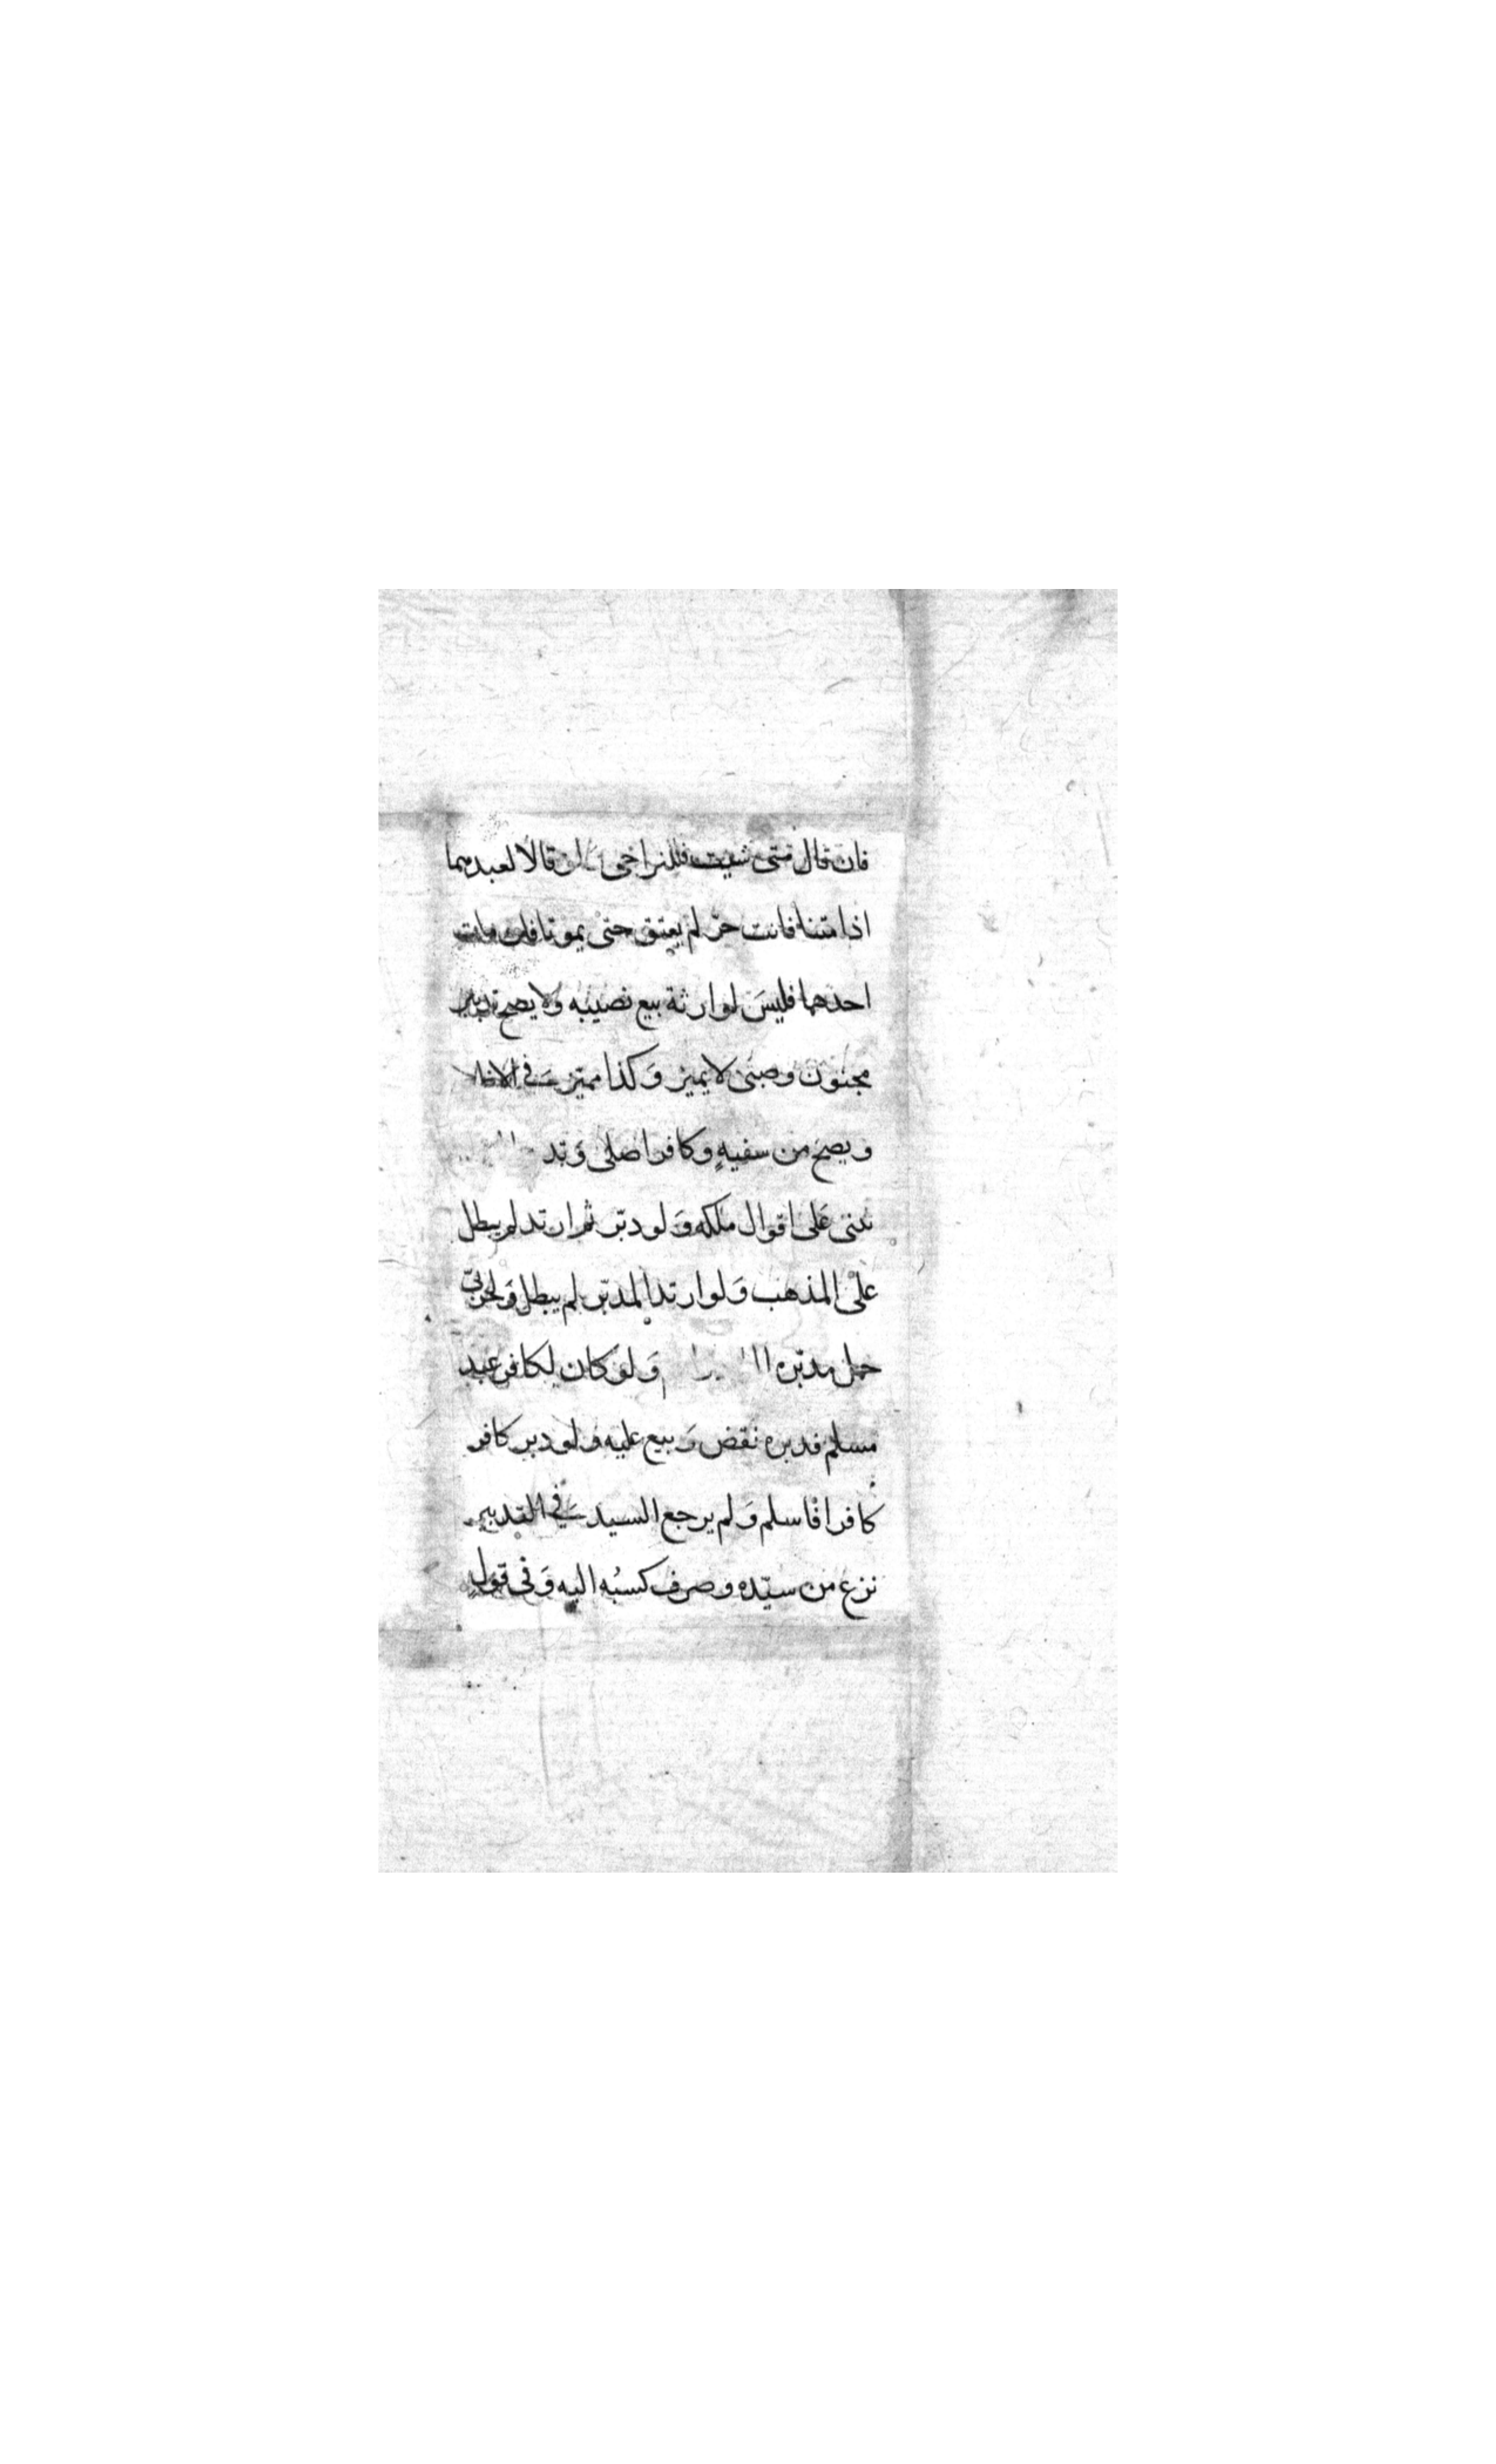 فان قال متى شيت فللتراخى ان قالا لعبدهما
اذا متنا فانت حرّ لم يعتق حتى يموتا فان مات
احدهما فليسَ لوارثة بيع نصيبه ولا يصح تدبير
مجنون وصبى لا يميز وَكذا مميّز فى الاظهر
ويصح من سفيهٍ وكافر اصلى وَتد
تبنى عَلى اقوال ملكه وَلو دبّر ثم ارتد لم يبطل
على المذهب وَلو ارتد المدبّر لم يبطل وَلحربىّ
حمل مدبّره وَلو كان لكافر عبد
مسلم فدبره نقض وَبيع عليه وَلو دبر كافر
كافرا فاسلم وَلم يرجع السيد فى التدبير
نزع من سيّده وصرف كسبُه اليه وَفى قول